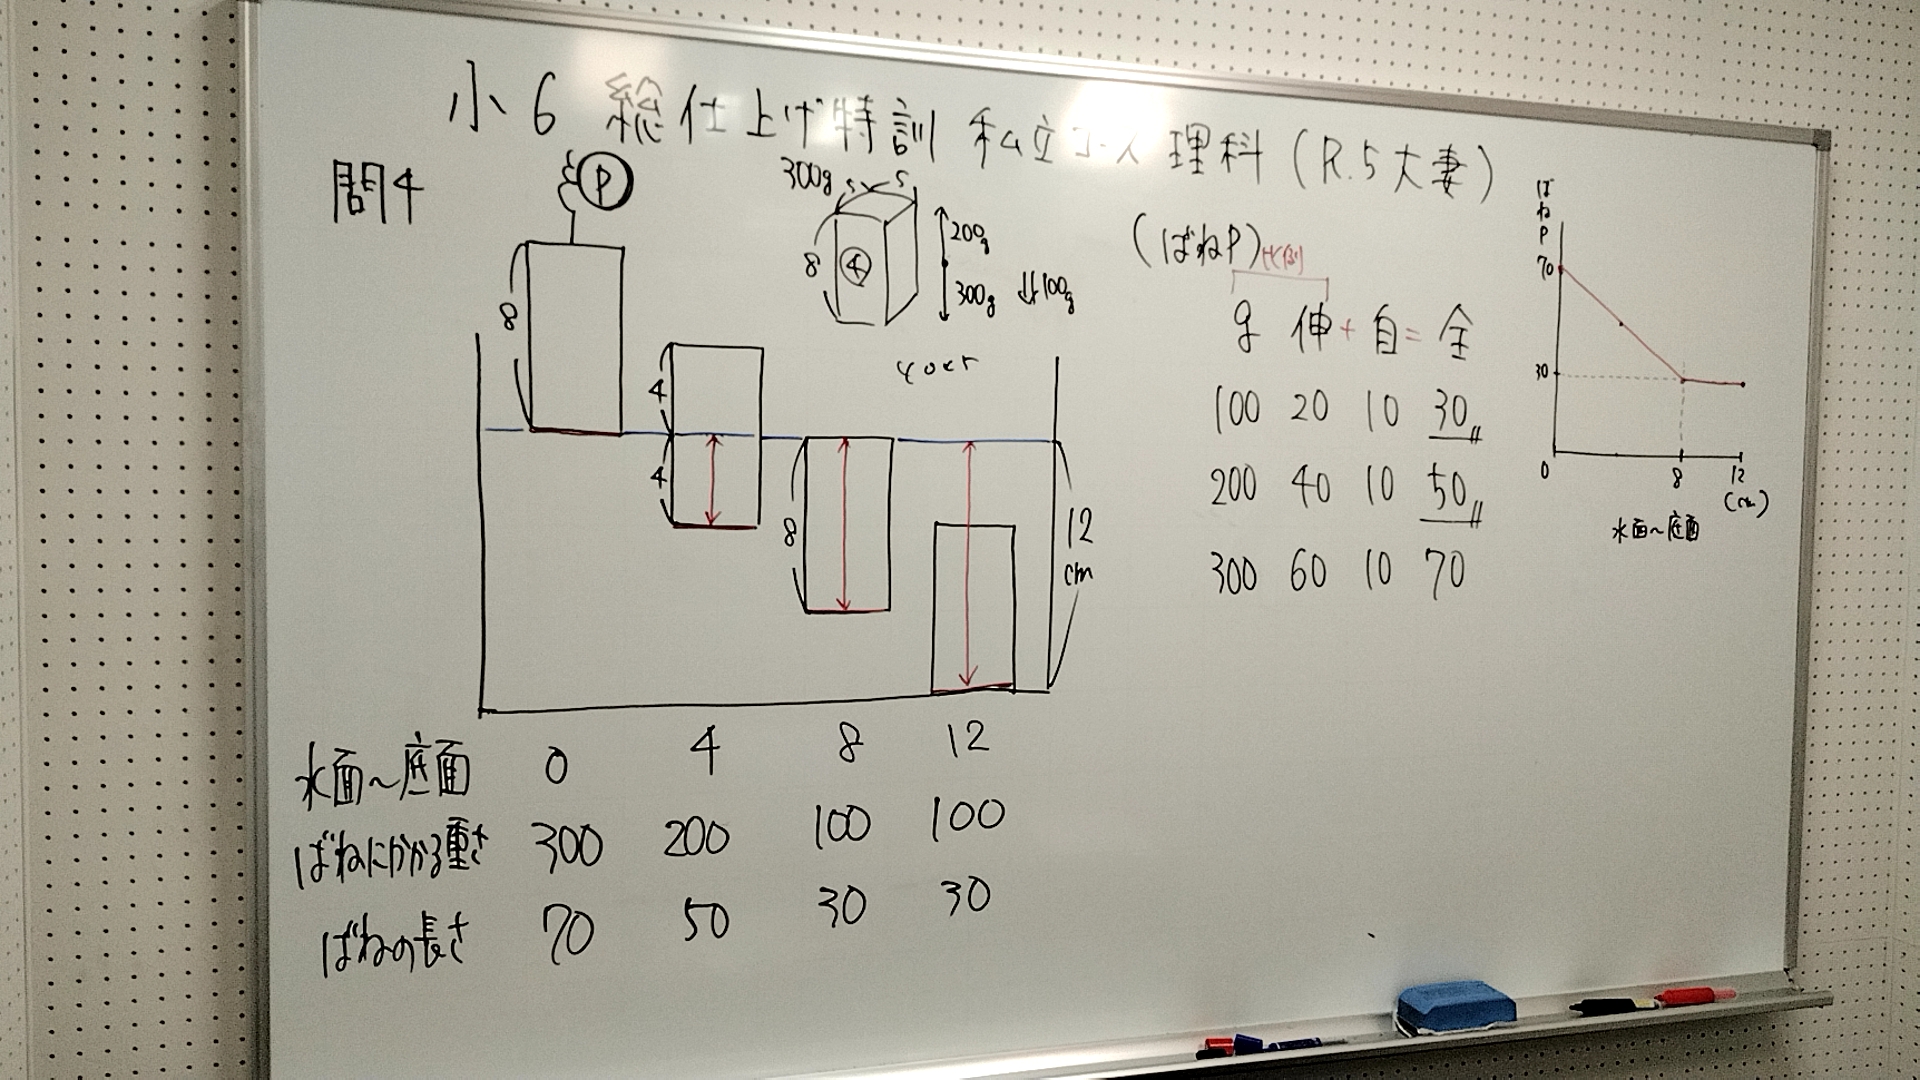 小6 総仕上げ特訓 私立コース 理科 (R.5大妻)
問4
P
8
4
4
8
12
cm
300g
5 5
8
④
200g
300g ↓100g
(ばねP)
比例
g 伸+自=全
100 20 10 30
200 40 10 50
300 60 10 70
ばねP
70
30
0 8 12
(cm)
水面〜底面
水面〜底面 0 4 8 12
ばねにかかる重さ 300 200 100 100
ばねの長さ 70 50 30 30